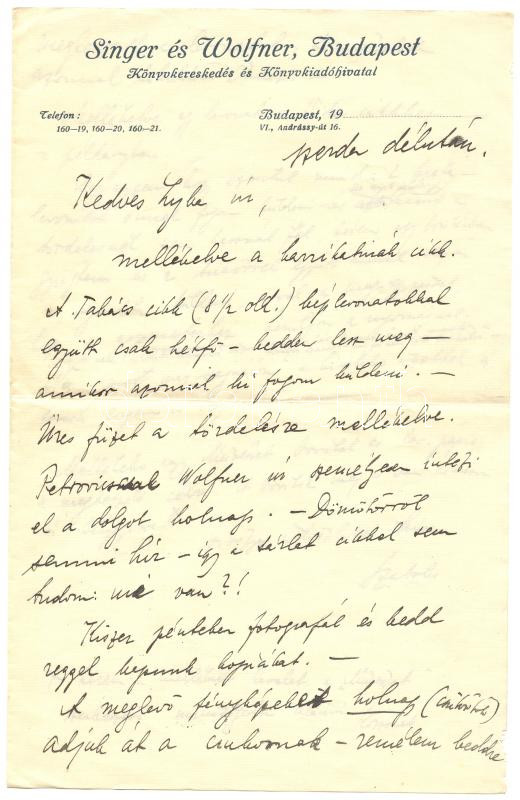 Singer és Wolfner, Budapest
Könyvkereskedés és Könyvkiadóhivatal
Telefon:
160—19, 160—20, 160—21.
Budapest, 19
VI., Andrássy-út 16.
szerda délután.
Kedves Lyka úr,
mellékelve a karrikatúrák cikk.
A Takács cikk (8 1/2 old.) képlevonatokkal
együtt csak hétfő – kedden lesz meg –
amikor azonnal ki fogom küldeni. –
Üres füzet a tördelésre mellékelve.
Petrovicsnál Wolfner úr személyesen intézi
el a dolgot holnap. – Dömötörről
semmi hír – így a tárlat cikkel sem
tudom: mi van?!
Kiszer pénteken fotografál és kedd
reggel kapunk kopiákat. –
A meglevő fényképeket holnap (csütörtök)
adjuk át a cinkosnak – remélem keddre